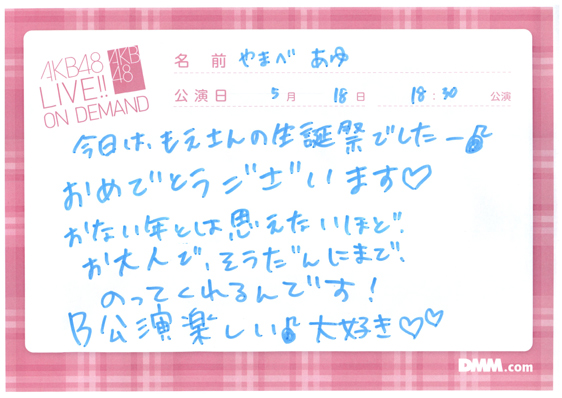 AKB48
LIVE!!
ON DEMAND
AKB
48
名前 やまべ あゆ
公演日 5月 18日 18:30 公演
今日は、もえさんの生誕祭でしたー♪
おめでとうございます♡
おない年とは思えないほど、
お大人で、そうだんにまで、
のってくれるんです!
B公演楽しい♪大好き♡♡
DMM.com